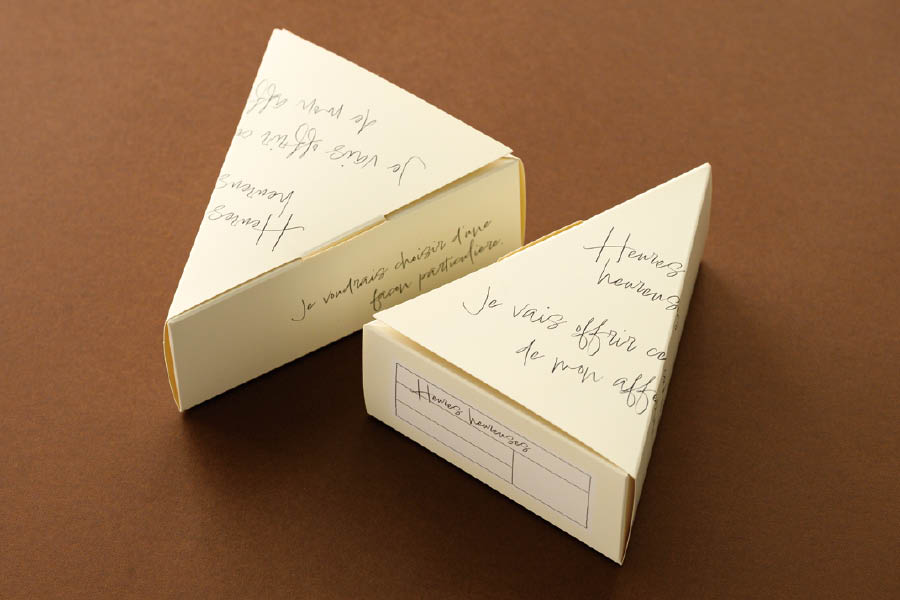 Heures
heureus
Je vais offrir c
de mon aff
Je voudrais choisir d'une
façon particulière.
Heures
heureus
Je vais offrir ce
de mon aff
Heures heureuses